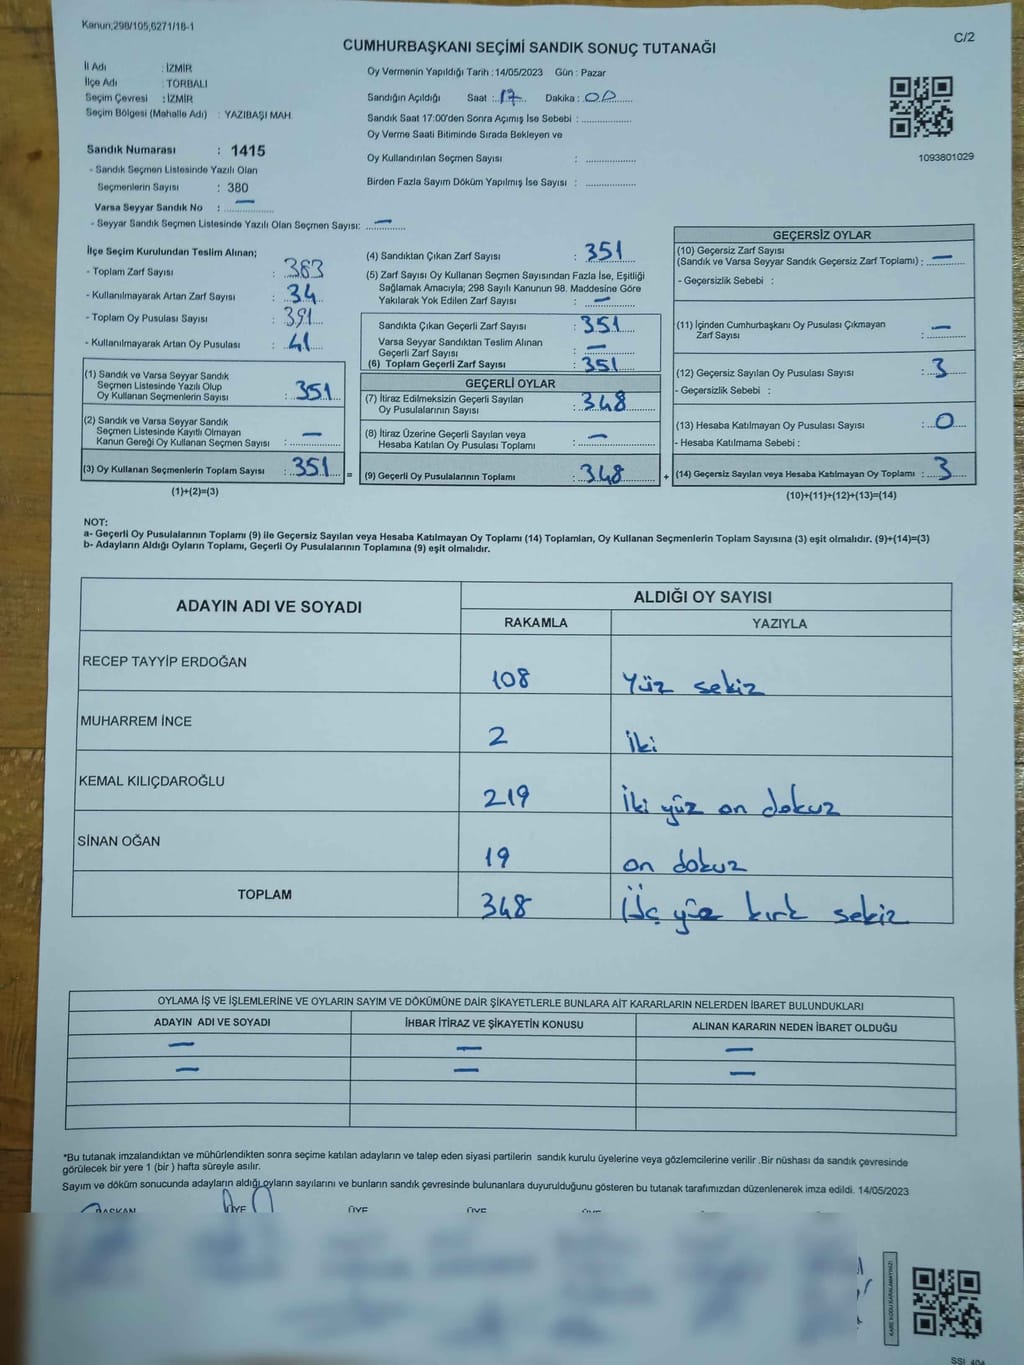 Kanun;298/105,6271/18-1
C/2
CUMHURBAŞKANI SEÇİMİ SANDIK SONUÇ TUTANAĞI
İl Adı : İZMİR
İlçe Adı : TORBALI
Seçim Çevresi : İZMİR
Seçim Bölgesi (Mahalle Adı) : YAZIBAŞI MAH.
Sandık Numarası : 1415
- Sandık Seçmen Listesinde Yazılı Olan
Seçmenlerin Sayısı : 380
Varsa Seyyar Sandık No : —
- Seyyar Sandık Seçmen Listesinde Yazılı Olan Seçmen Sayısı: —
Oy Vermenin Yapıldığı Tarih : 14/05/2023 Gün : Pazar
Sandığın Açıldığı Saat : 17 Dakika : 00
Sandık Saat 17:00'den Sonra Açımış İse Sebebi :
Oy Verme Saati Bitiminde Sırada Bekleyen ve
Oy Kullandırılan Seçmen Sayısı :
Birden Fazla Sayım Döküm Yapılmış İse Sayısı :
1093801029
İlçe Seçim Kurulundan Teslim Alınan;
- Toplam Zarf Sayısı : 383
- Kullanılmayarak Artan Zarf Sayısı : 34
- Toplam Oy Pusulası Sayısı : 391
- Kullanılmayarak Artan Oy Pusulası : 41
(1) Sandık ve Varsa Seyyar Sandık
Seçmen Listesinde Yazılı Olup
Oy Kullanan Seçmenlerin Sayısı : 351
(2) Sandık ve Varsa Seyyar Sandık
Seçmen Listesinde Kayıtlı Olmayan
Kanun Gereği Oy Kullanan Seçmen Sayısı : —
(3) Oy Kullanan Seçmenlerin Toplam Sayısı : 351
(1)+(2)=(3)
(4) Sandıktan Çıkan Zarf Sayısı : 351
(5) Zarf Sayısı Oy Kullanan Seçmen Sayısından Fazla İse, Eşitliği
Sağlamak Amacıyla; 298 Sayılı Kanunun 98. Maddesine Göre
Yakılarak Yok Edilen Zarf Sayısı : —
Sandıkta Çıkan Geçerli Zarf Sayısı : 351
Varsa Seyyar Sandıktan Teslim Alınan
Geçerli Zarf Sayısı : —
(6) Toplam Geçerli Zarf Sayısı : 351
GEÇERLİ OYLAR
(7) İtiraz Edilmeksizin Geçerli Sayılan
Oy Pusulalarının Sayısı : 348
(8) İtiraz Üzerine Geçerli Sayılan veya
Hesaba Katılan Oy Pusulası Toplamı : —
= (9) Geçerli Oy Pusulalarının Toplamı : 348
GEÇERSİZ OYLAR
(10) Geçersiz Zarf Sayısı
(Sandık ve Varsa Seyyar Sandık Geçersiz Zarf Toplamı) : —
- Geçersizlik Sebebi :
(11) İçinden Cumhurbaşkanı Oy Pusulası Çıkmayan
Zarf Sayısı : —
(12) Geçersiz Sayılan Oy Pusulası Sayısı : 3
- Geçersizlik Sebebi :
(13) Hesaba Katılmayan Oy Pusulası Sayısı : 0
- Hesaba Katılmama Sebebi :
+ (14) Geçersiz Sayılan veya Hesaba Katılmayan Oy Toplamı : 3
(10)+(11)+(12)+(13)=(14)
NOT:
a- Geçerli Oy Pusulalarının Toplamı (9) ile Geçersiz Sayılan veya Hesaba Katılmayan Oy Toplamı (14) Toplamları, Oy Kullanan Seçmenlerin Toplam Sayısına (3) eşit olmalıdır. (9)+(14)=(3)
b- Adayların Aldığı Oyların Toplamı, Geçerli Oy Pusulalarının Toplamına (9) eşit olmalıdır.
ADAYIN ADI VE SOYADI ALDIĞI OY SAYISI
RAKAMLA YAZIYLA
RECEP TAYYİP ERDOĞAN 108 Yüz sekiz
MUHARREM İNCE 2 İki
KEMAL KILIÇDAROĞLU 219 İki yüz on dokuz
SİNAN OĞAN 19 on dokuz
TOPLAM 348 Üç yüz kırk sekiz
OYLAMA İŞ VE İŞLEMLERİNE VE OYLARIN SAYIM VE DÖKÜMÜNE DAİR ŞİKAYETLERLE BUNLARA AİT KARARLARIN NELERDEN İBARET BULUNDUKLARI
ADAYIN ADI VE SOYADI İHBAR İTİRAZ VE ŞİKAYETİN KONUSU ALINAN KARARIN NEDEN İBARET OLDUĞU
— — —
— — —
*Bu tutanak imzalandıktan ve mühürlendikten sonra seçime katılan adayların ve talep eden siyasi partilerin sandık kurulu üyelerine veya gözlemcilerine verilir .Bir nüshası da sandık çevresinde
görülecek bir yere 1 (bir ) hafta süreyle asılır.
Sayım ve döküm sonucunda adayların aldığı oyların sayılarını ve bunların sandık çevresinde bulunanlara duyurulduğunu gösteren bu tutanak tarafımızdan düzenlenerek imza edildi. 14/05/2023
BAŞKAN ÜYE ÜYE ÜYE ÜYE